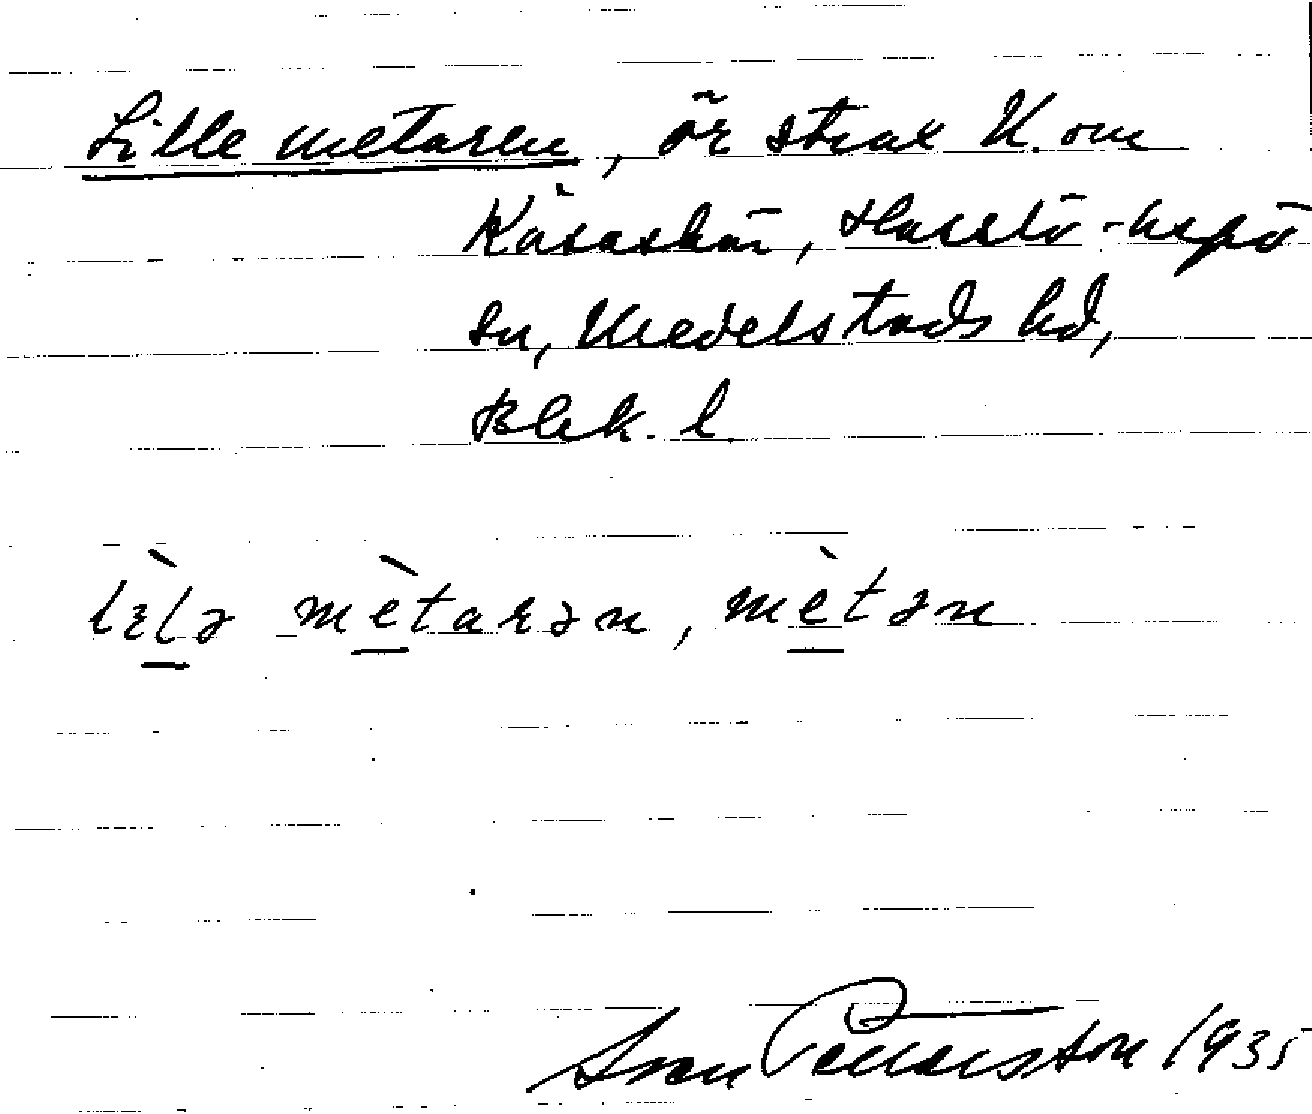 Lille metaren, ör strax N. om
Kåsaskär, Hasslö-Aspö
sn, Medelstads hd,
Blek. l.
lɛ̀lə mètarən, mètən
Sven Pettersson 1935